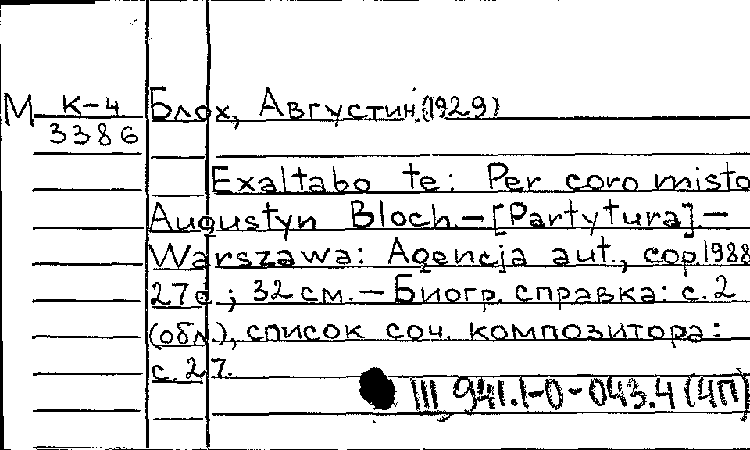 М К-4 Блох, Августин (1929)
3386
Exaltabo te: Per coro misto
Augustyn Bloch.—[Partytura].—
Warszawa: Agencja aut., cop.1988
27 с; 32 см.— Биогр. справка: с. 2
(обл.), список соч. композитора:
с. 27.
III 941.1-0-043.4 (4П)